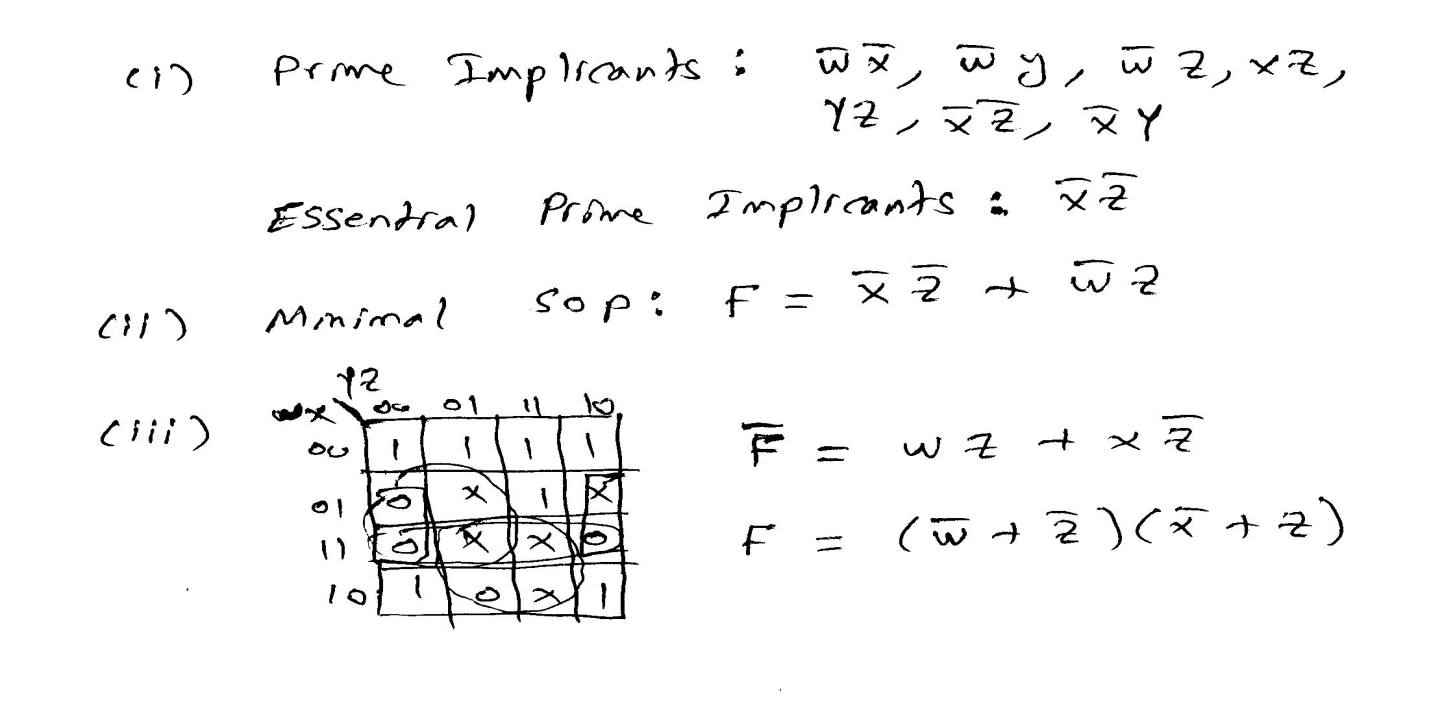 (i) Prime Implicants : w̅ x̅, w̅ y, w̅ z, xz,
YZ, x̅ z̅, x̅ Y
Essential Prime Implicants : x̅ z̅
(ii) Minimal SOP: F = x̅ z̅ + w̅ z
(iii)
YZ
wx 00 01 11 10
00 1 1 1 1
01 0 x 1 x
11 0 x x 0
10 1 0 x 1
F̅ = w z + x z̅
F = (w̅ + z̅)(x̅ + z)